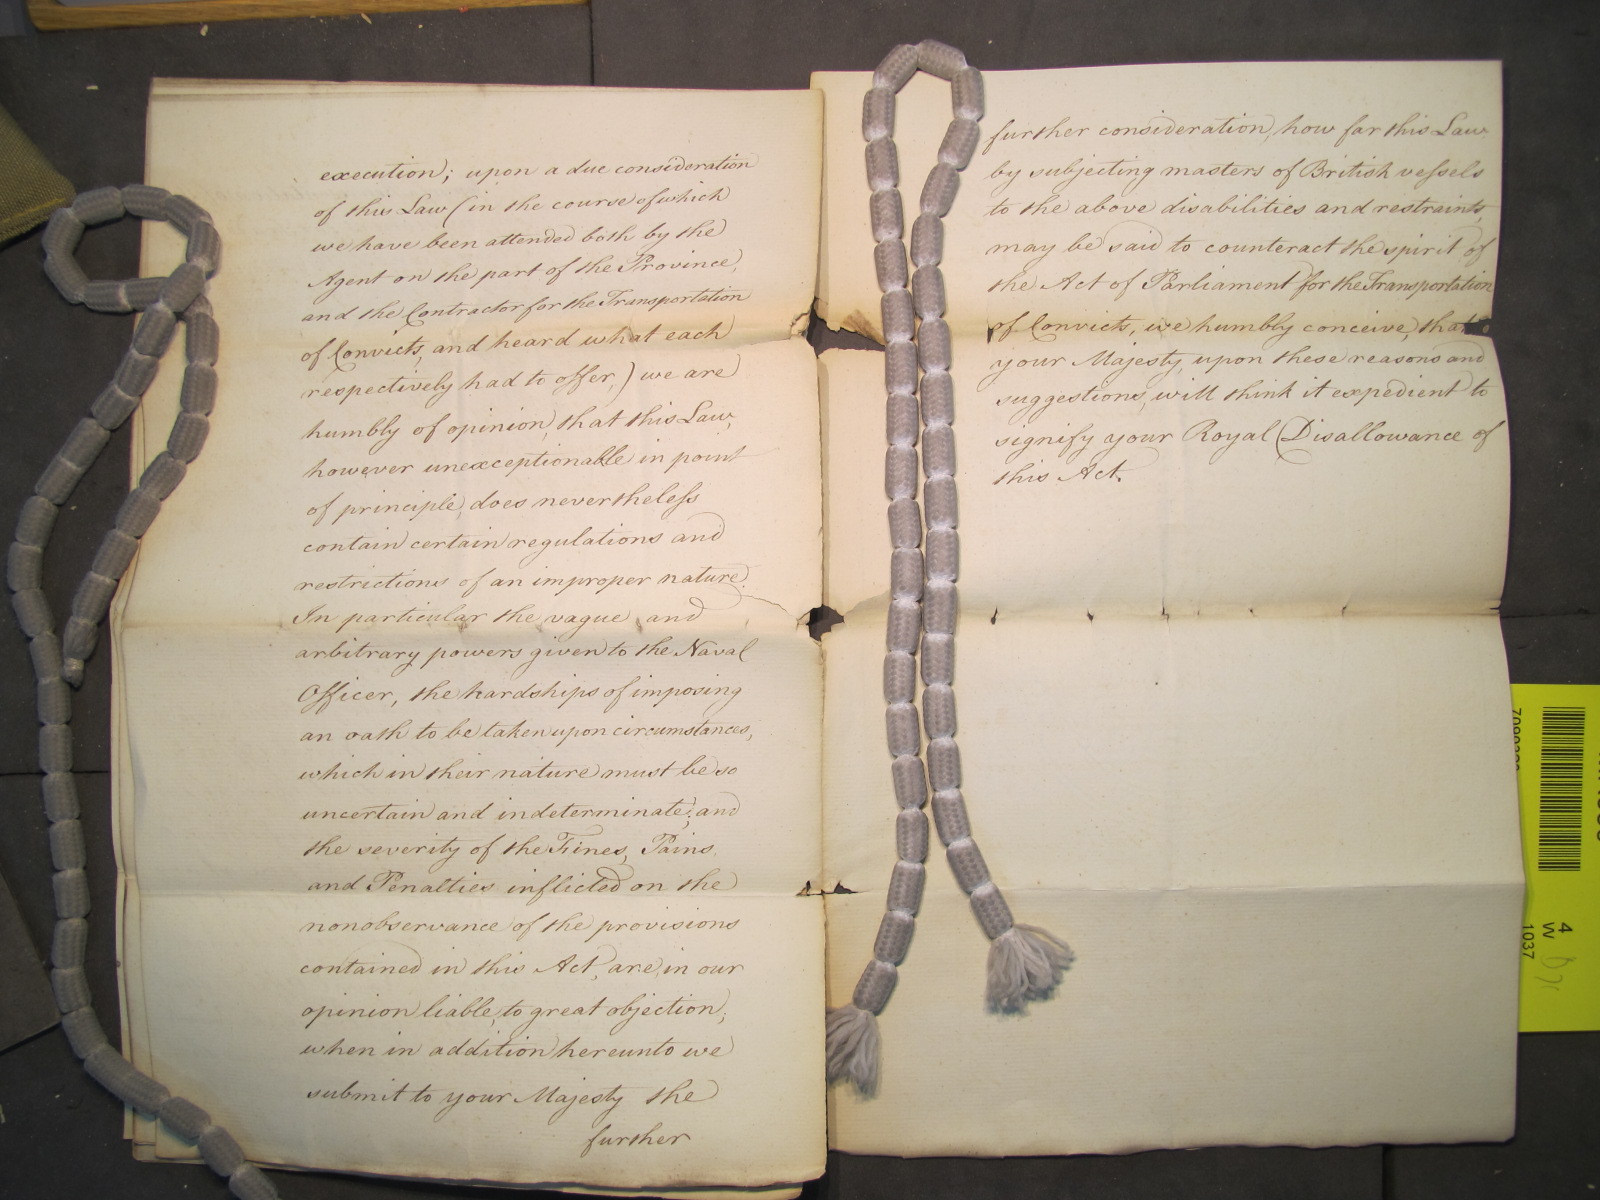 execution; upon a due consideration
of this Law (in the course of which
we have been attended both by the
Agent on the part of the Province,
and the Contractor for the Transportation
of Convicts, and heard what each
respectively had to offer,) we are
humbly of opinion, that this Law,
however unexceptionable in point
of principle, does nevertheless
contain certain regulations and
restrictions of an improper nature.
In particular the vague and
arbitrary powers given to the Naval
Officer, the hardships of imposing
an oath to be taken upon circumstances,
which in their nature must be so
uncertain and indeterminate; and
the severity of the Fines, Pains
and Penalties inflicted on the
nonobservance of the provisions
contained in this Act, are, in our
opinion liable, to great objection;
when in addition hereunto we
submit to your Majesty the
further
further consideration, how far this Law
by subjecting masters of British vessels
to the above disabilities and restraints,
may be said to counteract the spirit of
the Act of Parliament for the Transportation
of Convicts, we humbly conceive, that
your Majesty, upon these reasons and
suggestions, will think it expedient to
signify your Royal Disallowance of
this Act.
4
W
1037